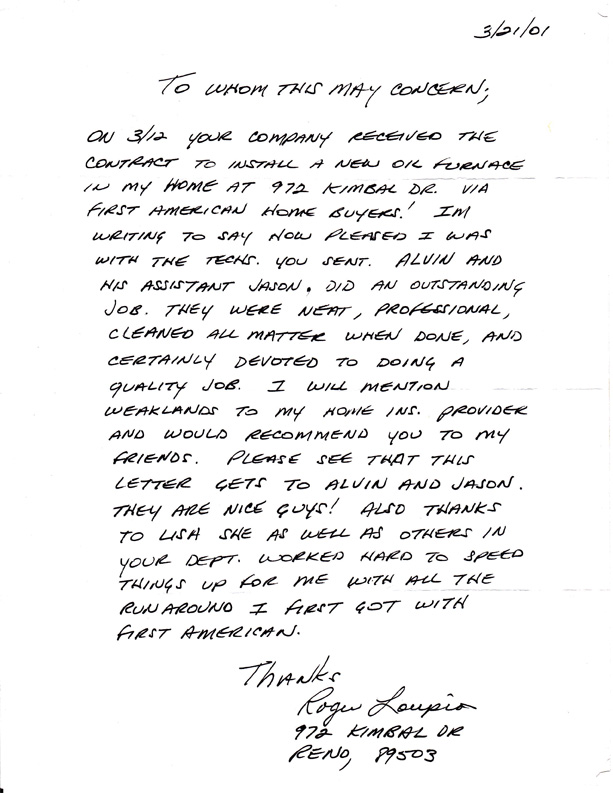 3/21/01
TO WHOM THIS MAY CONCERN;
ON 3/12 YOUR COMPANY RECEIVED THE
CONTRACT TO INSTALL A NEW OIL FURNACE
IN MY HOME AT 972 KIMBAL DR. VIA
FIRST AMERICAN HOME BUYERS! IM
WRITING TO SAY HOW PLEASED I WAS
WITH THE TECHS. YOU SENT. ALVIN AND
HIS ASSISTANT JASON. DID AN OUTSTANDING
JOB. THEY WERE NEAT, PROFESSIONAL,
CLEANED ALL MATTER WHEN DONE, AND
CERTAINLY DEVOTED TO DOING A
QUALITY JOB. I WILL MENTION
WEAKLANDS TO MY HOME INS. PROVIDER
AND WOULD RECOMMEND YOU TO MY
FRIENDS. PLEASE SEE THAT THIS
LETTER GETS TO ALVIN AND JASON.
THEY ARE NICE GUYS! ALSO THANKS
TO LISA SHE AS WELL AS OTHERS IN
YOUR DEPT. WORKED HARD TO SPEED
THINGS UP FOR ME WITH ALL THE
RUNAROUND I FIRST GOT WITH
FIRST AMERICAN.
THANKS
Roger
972 KIMBAL DR
RENO, 89503